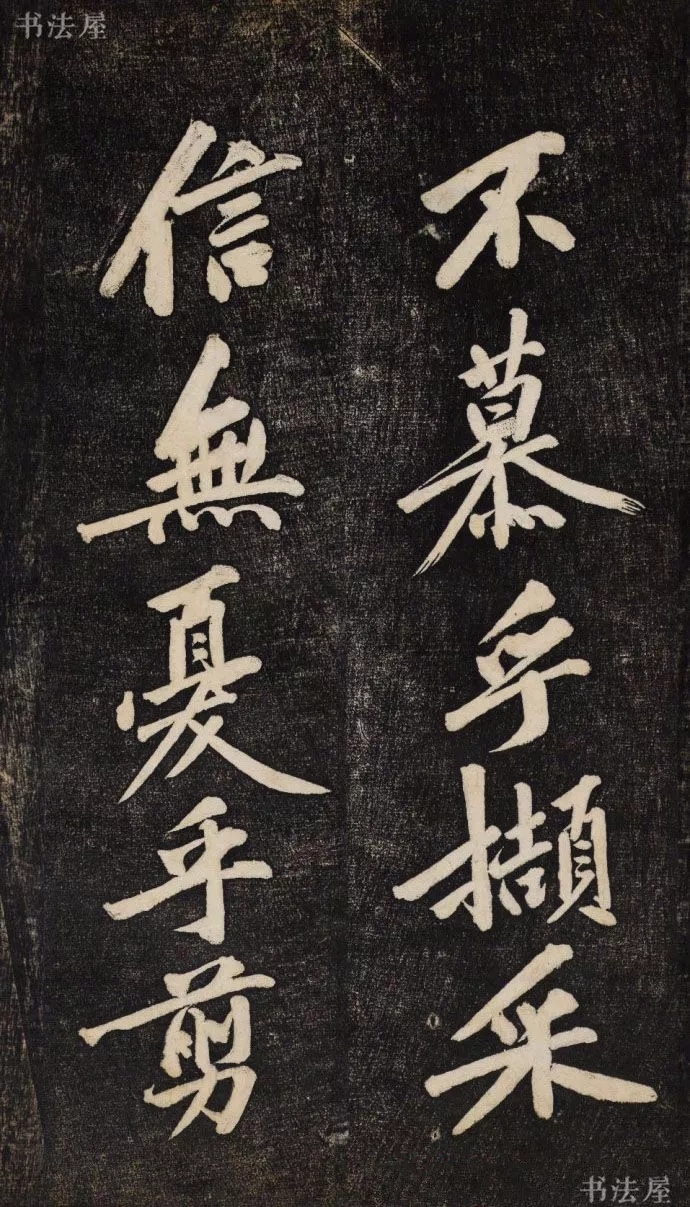 书法屋
不慕乎擷采
信無憂乎剪
书法屋